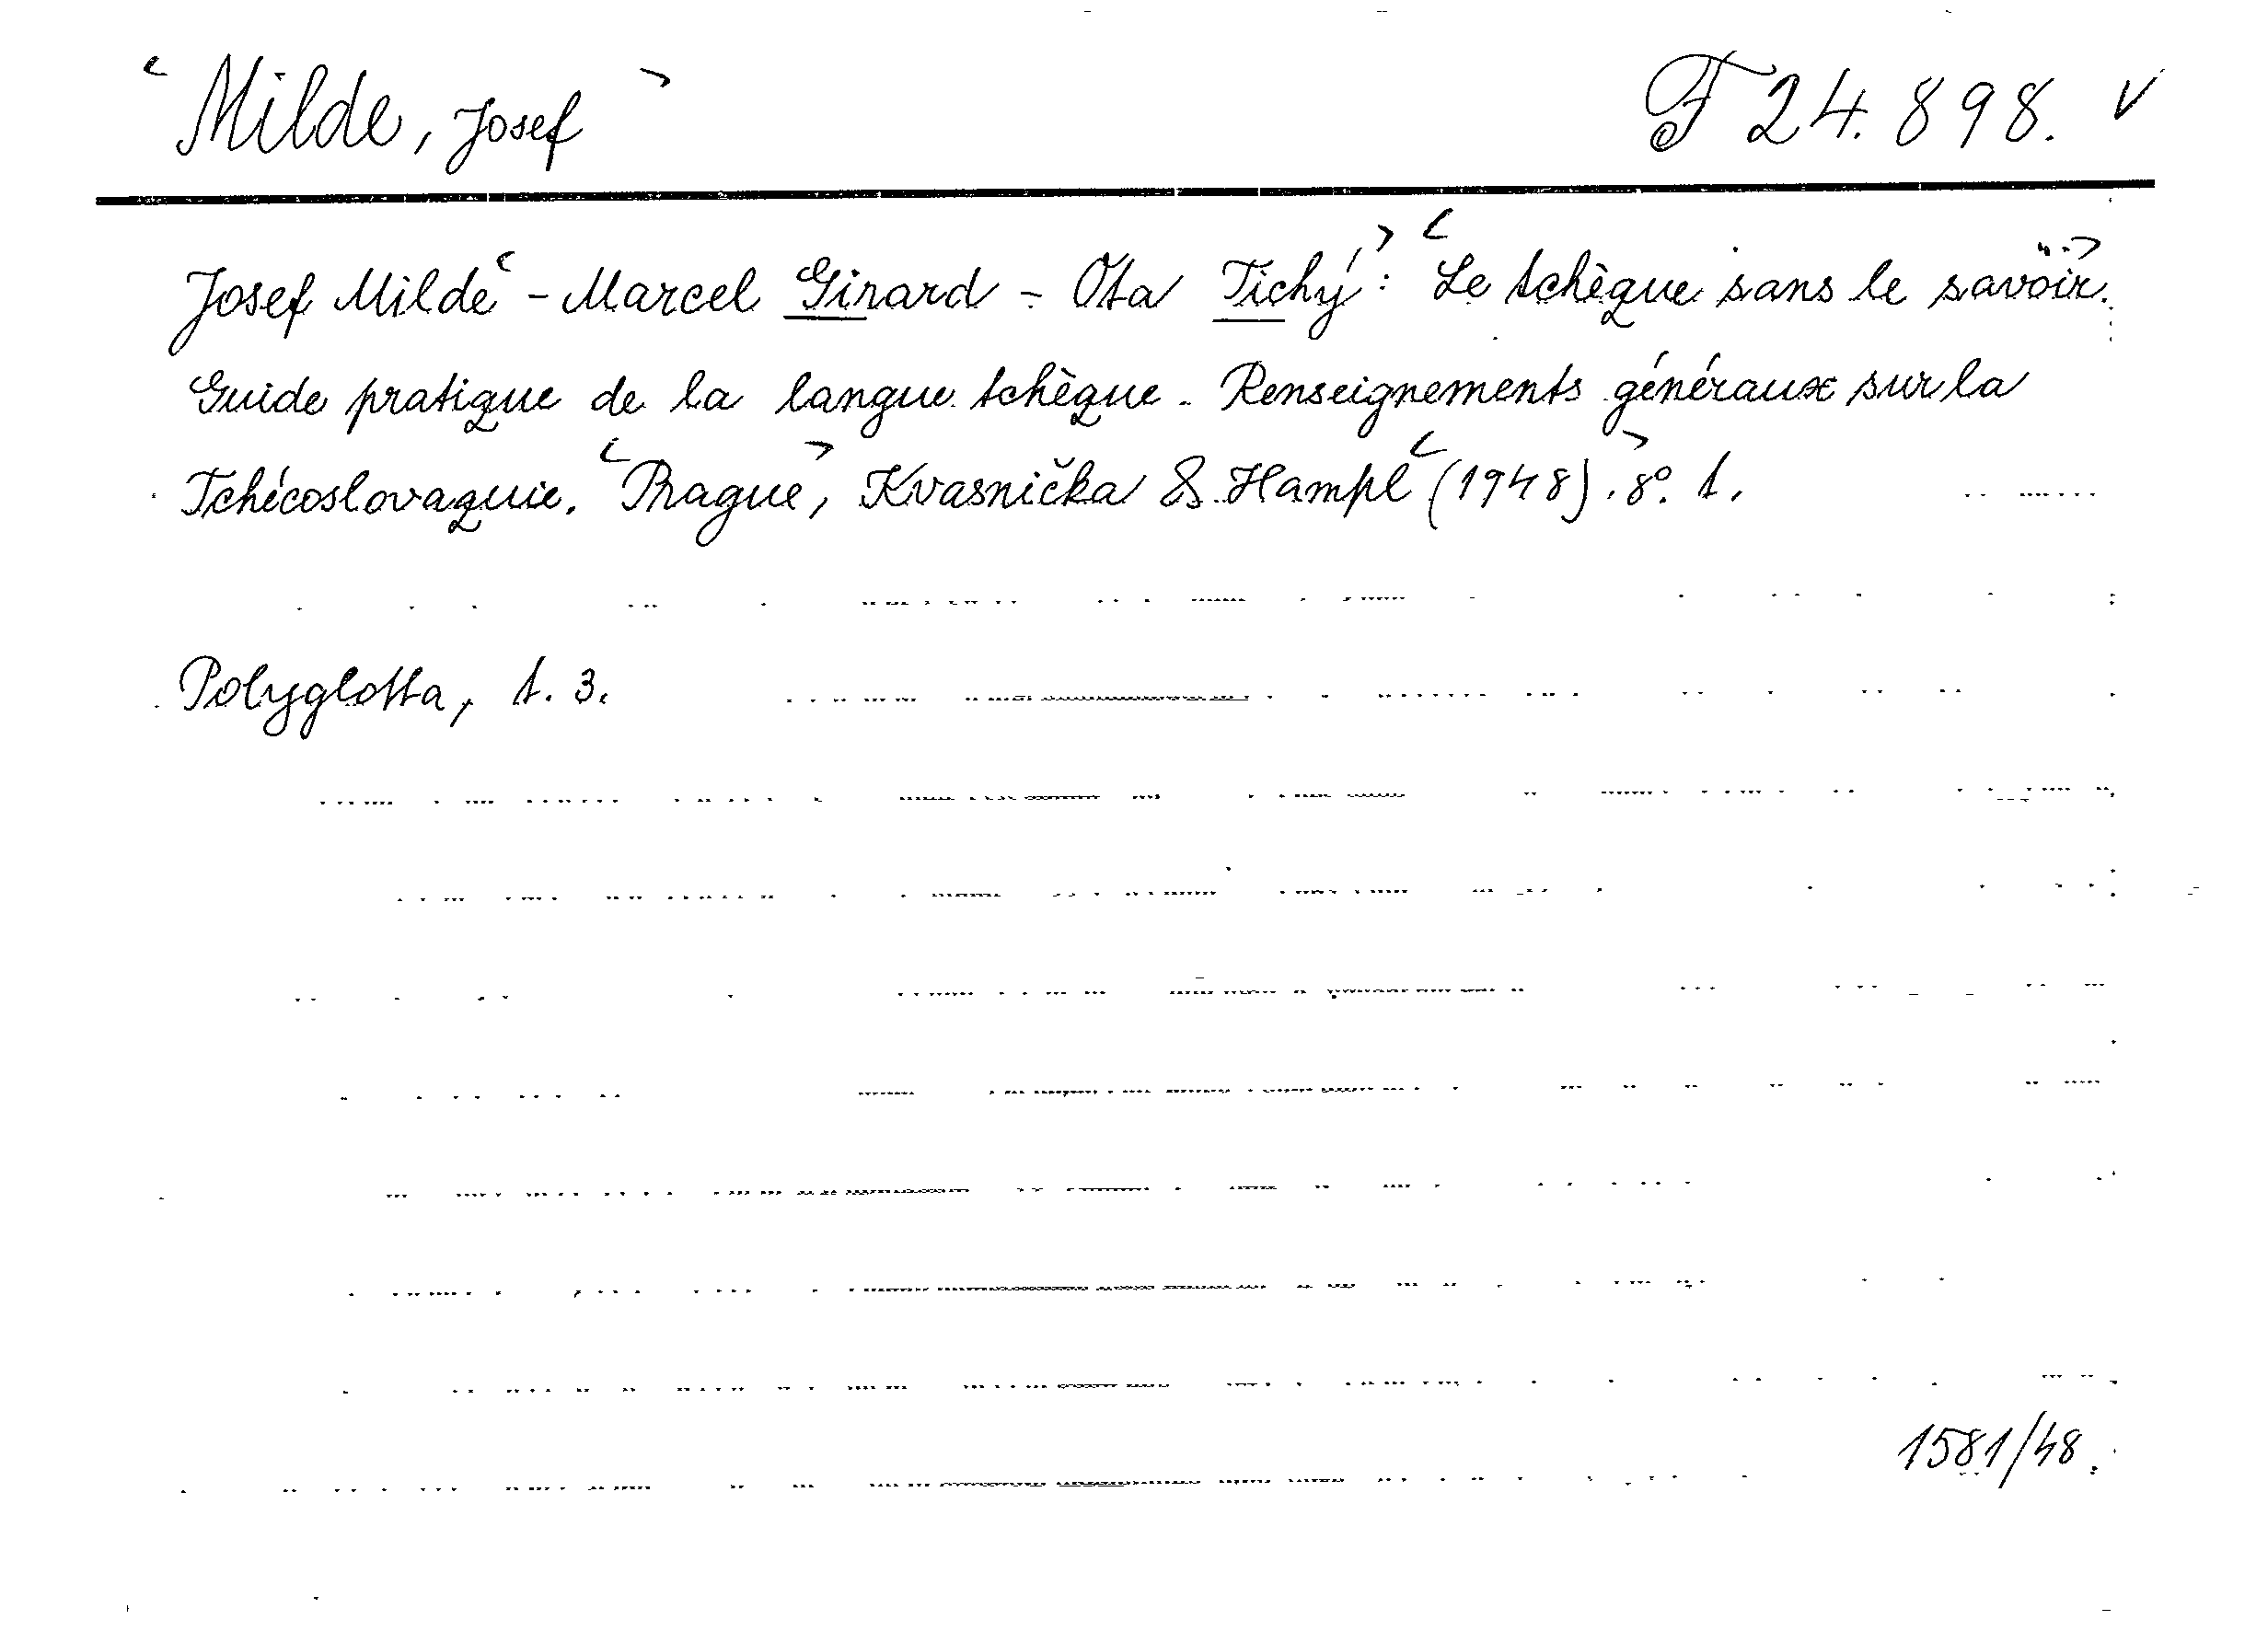 Milde, Josef F 24.898. v
Josef Milde - Marcel Girard - Ota Tichý: Le tchèque sans le savoir.
Guide pratique de la langue tchèque. Renseignements généraux sur la
Tchécoslovaquie. Prague, Kvasnička & Hampl (1948). 8°. t.
Polyglotta, t. 3.
1581/48.